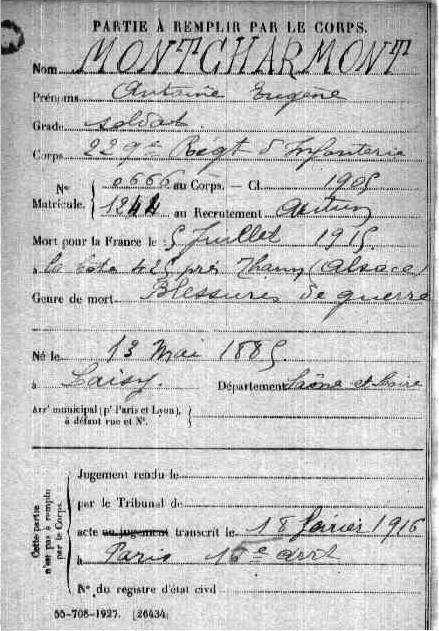 PARTIE À REMPLIR PAR LE CORPS.
Nom MONTCHARMONT
Prénoms Antoine Eugène
Grade soldat
Corps 229e Régt d'Infanterie
N° 0666 au Corps. — Cl. 1905
Matricule. 1244 au Recrutement Autun
Mort pour la France le 5 Juillet 1915
à la cote 425 près Thann (Alsace)
Genre de mort Blessures de guerre
Né le 13 Mai 1885
à Laisy. Département Saône et Loire
Arr' municipal (p' Paris et Lyon),
à défaut rue et N°.
Cette partie
n'est pas à remplir
par le Corps.
Jugement rendu le
par le Tribunal de
acte ou jugement transcrit le 18 février 1916
à Paris 15e arrt
N° du registre d'état civil
55-708-1927. [26434]